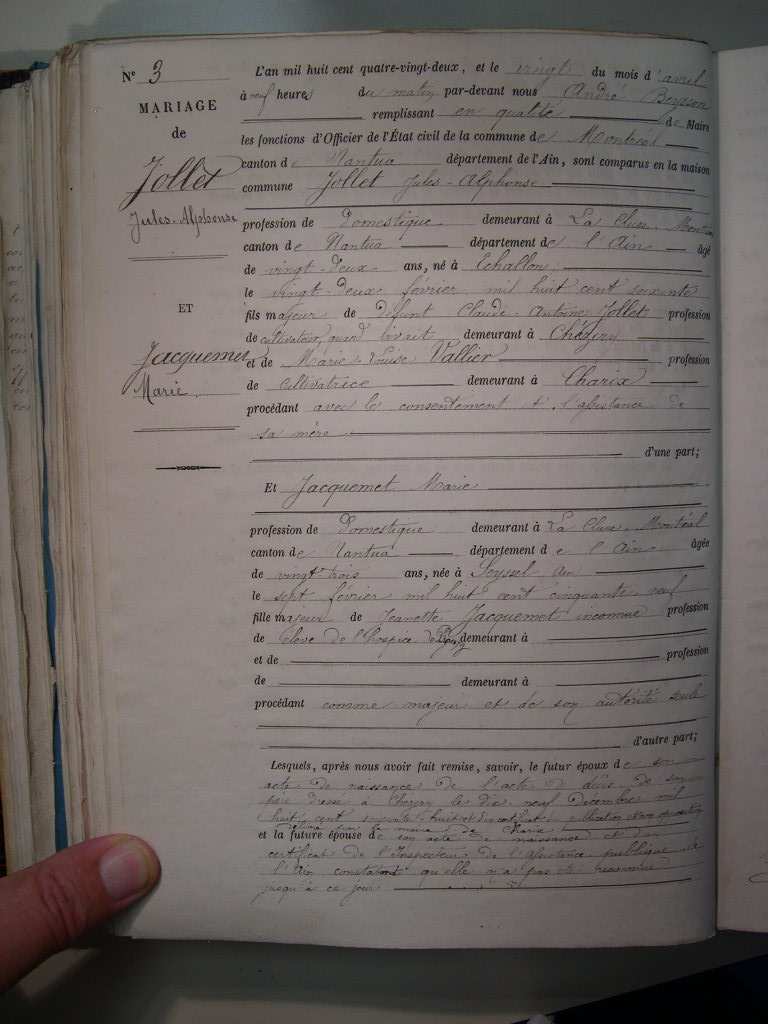 N° 3
MARIAGE
de
Jollet
Jules-Alphonse
ET
Jacquemet
Marie
L'an mil huit cent quatre-vingt-deux, et le vingt du mois d'avril
à neuf heures du matin par-devant nous André
remplissant en qualité de Maire
les fonctions d'Officier de l'État civil de la commune de Montréal
canton de Nantua département de l'Ain, sont comparus en la maison
commune Jollet Jules-Alphonse
profession de Domestique demeurant à La Cluse-
canton de Nantua département de l'Ain âgé
de vingt-deux ans, né à Echallon
le vingt-deux février mil huit cent soixante
fils majeur de défunt Claude-Antoine Jollet profession
de cultivateur, quand vivait demeurant à Chézery
et de Marie-Louise Vallier profession
de cultivatrice demeurant à Charix
procédant avec le consentement et l'assistance de
sa mère
d'une part;
Et Jacquemet Marie
profession de Domestique demeurant à La Cluse-Montréal
canton de Nantua département de l'Ain âgée
de vingt-trois ans, née à Seyssel Ain
le sept février mil huit cent cinquante neuf
fille majeur de Jeanette Jacquemet inconnue profession
de élève de l'hospice de demeurant à
et de profession
de demeurant à
procédant comme majeur et de son autorité seule
d'autre part;
Lesquels, après nous avoir fait remise, savoir, le futur époux de son
acte de naissance de l'acte de décès de son
père dressé à Chezery le dix neuf décembre mil
huit cent soixante huit et du certificat de publication et non opposition
délivré par le maire de Charix
et la future épouse de son acte de naissance et du
certificat de l'Inspecteur de l'assistance publique de
l'Ain constatant qu'elle n'a pas été reconnue
jusqu'à ce jour